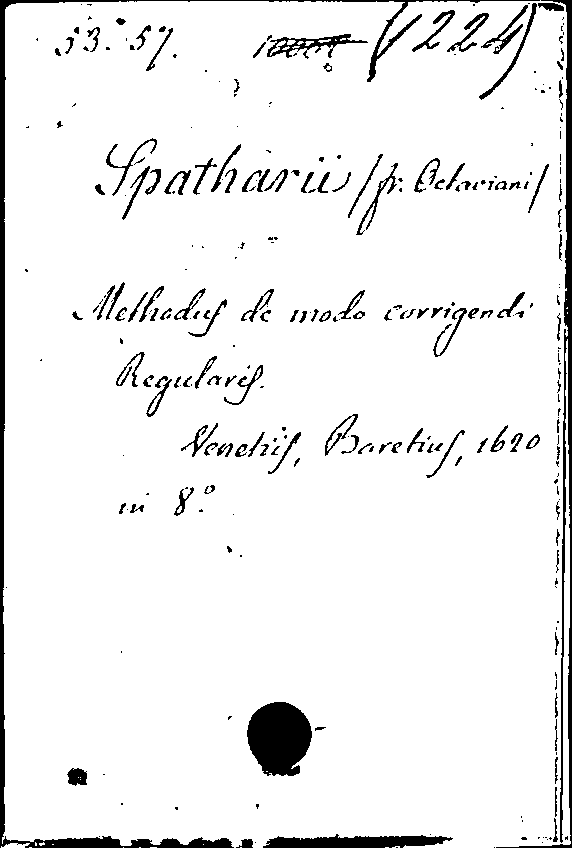 53.° 57. (1224)
Spatharii /fr. Octaviani/
Methodus de modo corrigendi
Regularis.
Venetiis, Baretius, 1620
in 8.°